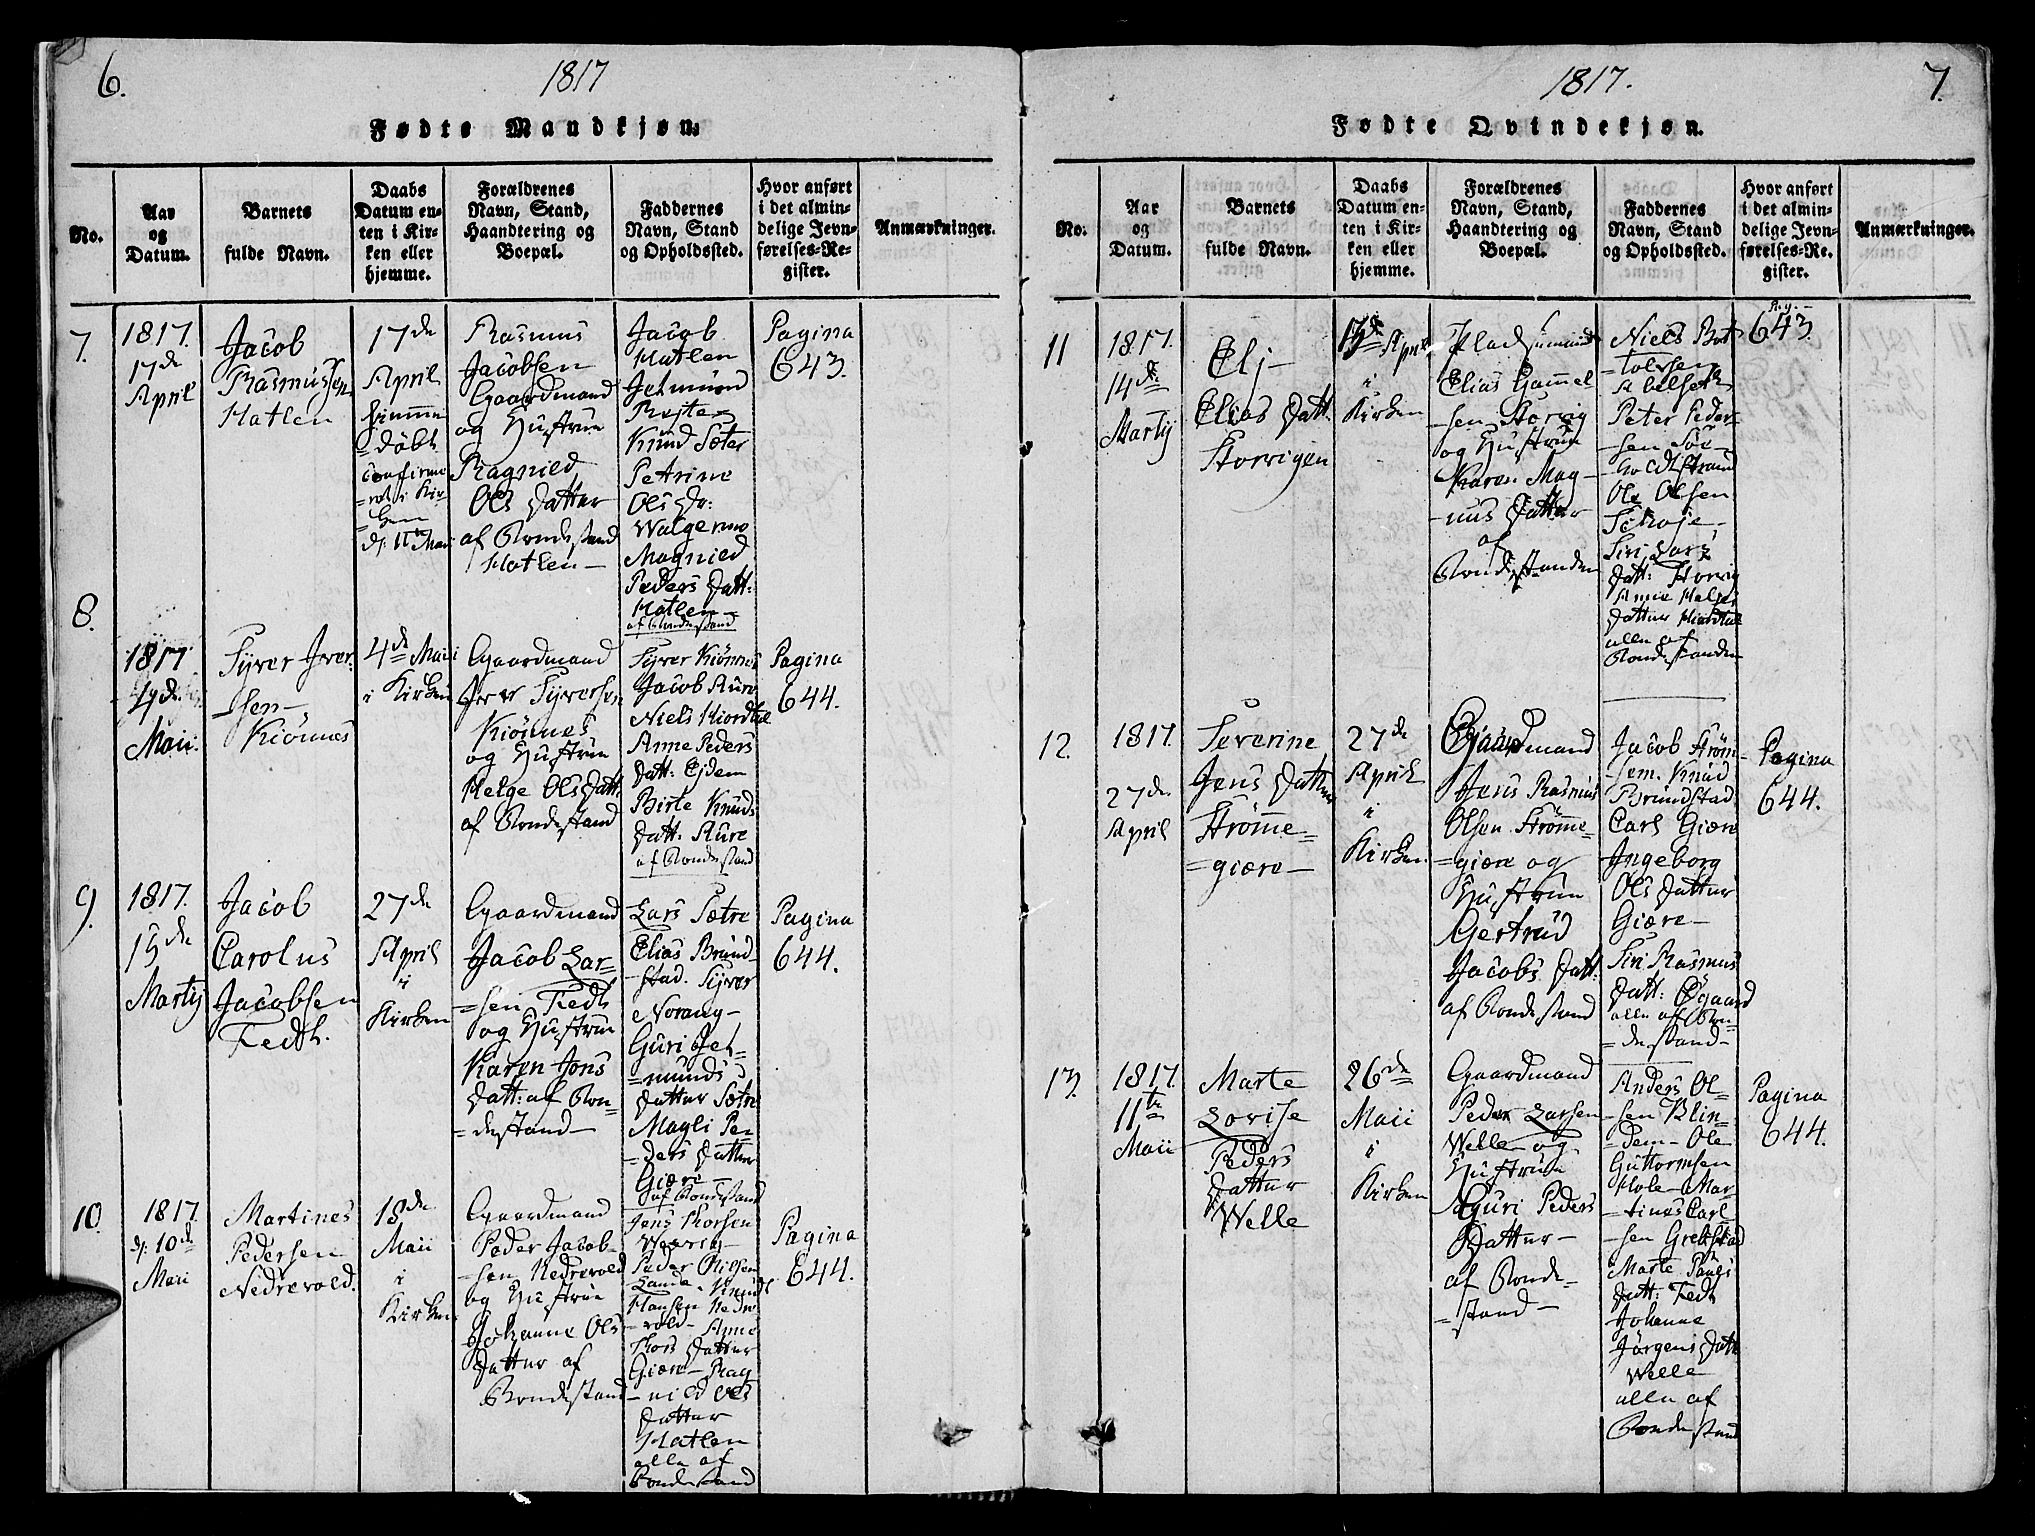 6.
1817
Fødte Mandkjøn.
No.
Aar
og
Datum.
Barnets
fulde Navn.
Daabs
Datum en-
ten i Kir-
ken eller
hjemme.
Forældrenes
Navn, Stand,
Haandtering og
Boepæl.
Faddernes
Navn, Stand
og Opholdssted.
Hvor anført
i det almin-
delige Jevn-
førelses-Re-
gister.
Anmærkninger.
7.
1817.
17de
April
Jacob
Rasmussen
Hatlen
17de
April
hiemme
døbt
confirme
=ret i Kir-
=ken
d: 11te Maii
Rasmus
Jacobsen
Gaardmand
og Hustrue
Ragnild
Ols Datter
af Bondestand
Hatlen —
Jacob
Hatlen
Jetmund
Røjte
Knud Sæter
Petrine
Ols Dr:
Walgermo
Magnild
Peders Datt:
Hatlen —
af Bondestand
Pagina
643.
8.
1817
4de
Maii.
Syver Iver-
-sen —
Kiönnes
4de Maii
i Kirken
Gaardmand
Iver Syversen
Kiönnes
og Hustrue
Helge Ols Datt:
af Bondestand
Syver Kiönnes
Jacob Aure
Niels Hiordtal
Anne Peders
Datt: Ejdem
Birte Knuds
Datt: Aure
af Bondestand
Pagina
644.
9.
1817.
15de
Martij
Jacob
Carolus
Jacobsen
Fedt.
27de
April
i
Kirken
Gaardmand
Jacob Lar-
=sen Fedt
og Hustrue
Karen Jons
Datt: af Bon=
=destand —
Lars Sætre
Elias Brund-
-stad. Syver
Norang —
Guri Jet-
=munds
Datter Sætre
Magli Pe-
-ders Datter
Giære —
af Bondestand
Pagina
644.
10.
1817.
d: 10de
Maii
Martines
Pedersen
Nedrevold.
18de
Maii
i
Kirken
Gaardmand
Peder Jacob-
-sen Nedrevold
og Hustrue
Johanne Ols
Datter af
Bondestand
Jens Thorsen
Peder Nilsen
Lande Knud
Hansen Nedre
-vold - Anne
Thors Datter
Giære — Rag
-nild Ols
Datter
Hatlen
alle af
Bondestand
Pagina
644.
1817.
7.
Fødte Qvindekjøn.
No.
Aar
og
Datum.
Barnets
fulde Navn.
Daabs
Datum en-
ten i Kir-
ken eller
hjemme.
Forældrenes
Navn, Stand,
Haandtering og
Boepæl.
Faddernes
Navn, Stand
og Opholdssted.
Hvor anført
i det almin-
delige Jevn-
førelses-Re-
gister.
Anmærkninger.
11
1817.
14de
Martij
Elj —
Elias Datt.
Storvigen
April
i
Kirken
Pladsemand
Elias Gammel
-sen Storvig
og Hustrue
Karen Mag-
-nus Datter
af
Bondestanden
Niels Bot
-tolvsen
Abelseth
Peter Peder-
-sen Söe-
-holdtstrand
Ole Olsen
Schoje —
Siri Lars
Datt: Storvig
Anne Helges
Datter Hiordtal
alle af
Bondestanden
Pag. —
643.
12.
1817.
27de
April
Severine
Jens Datter
Strömme=
=giære —
27de
April
i
Kirken
Gaardmand
Jens Rasmus
Olsen Strömme=
=giære og
Hustrue
Gertrud
Jacobs Datt:
af Bondestand
Jacob Ström-
-hem. Knud
Brundstad
Carl Giære
Ingeborg
Ols Datter
Giære —
Siri Rasmus
Datt: Øgaard
alle af Bon=
=destand —
Pagina
644.
13.
1817.
11te
Maii
Marte
Lovise
Peders
Datter
Welle
26de
Maii
i
Kirken
Gaardmand
Peder Larsen
Welle og
Hustrue
Guri Peders
Datter —
af Bonde=
=stand —
Anders Ol-
-sen Blin-
-dem - Ole
Guttormsen
Hole - Mar-
-tines Carl-
-sen Grebstad
Marte Pauls
Datt: Fedt
Johanne
Jörgens Datt:
Welle
alle af
Bondestand
Pagina
644.